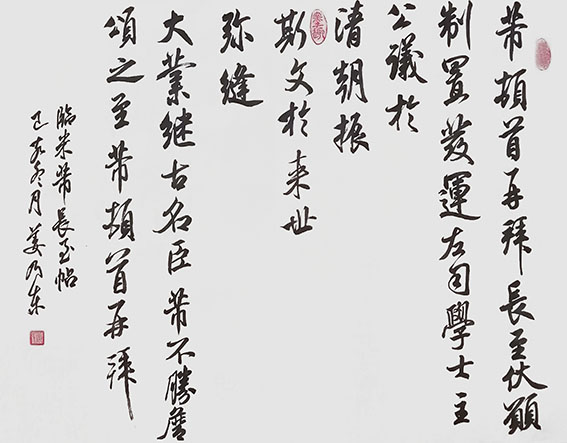 芾頓首再拜長至伏願
制置發運左司學士主
公議於
清朝振
斯文於来世
弥縫
大業继古名臣芾不勝詹
頌之至芾頓首再拜
临米芾長至帖
己亥冬月姜乃东